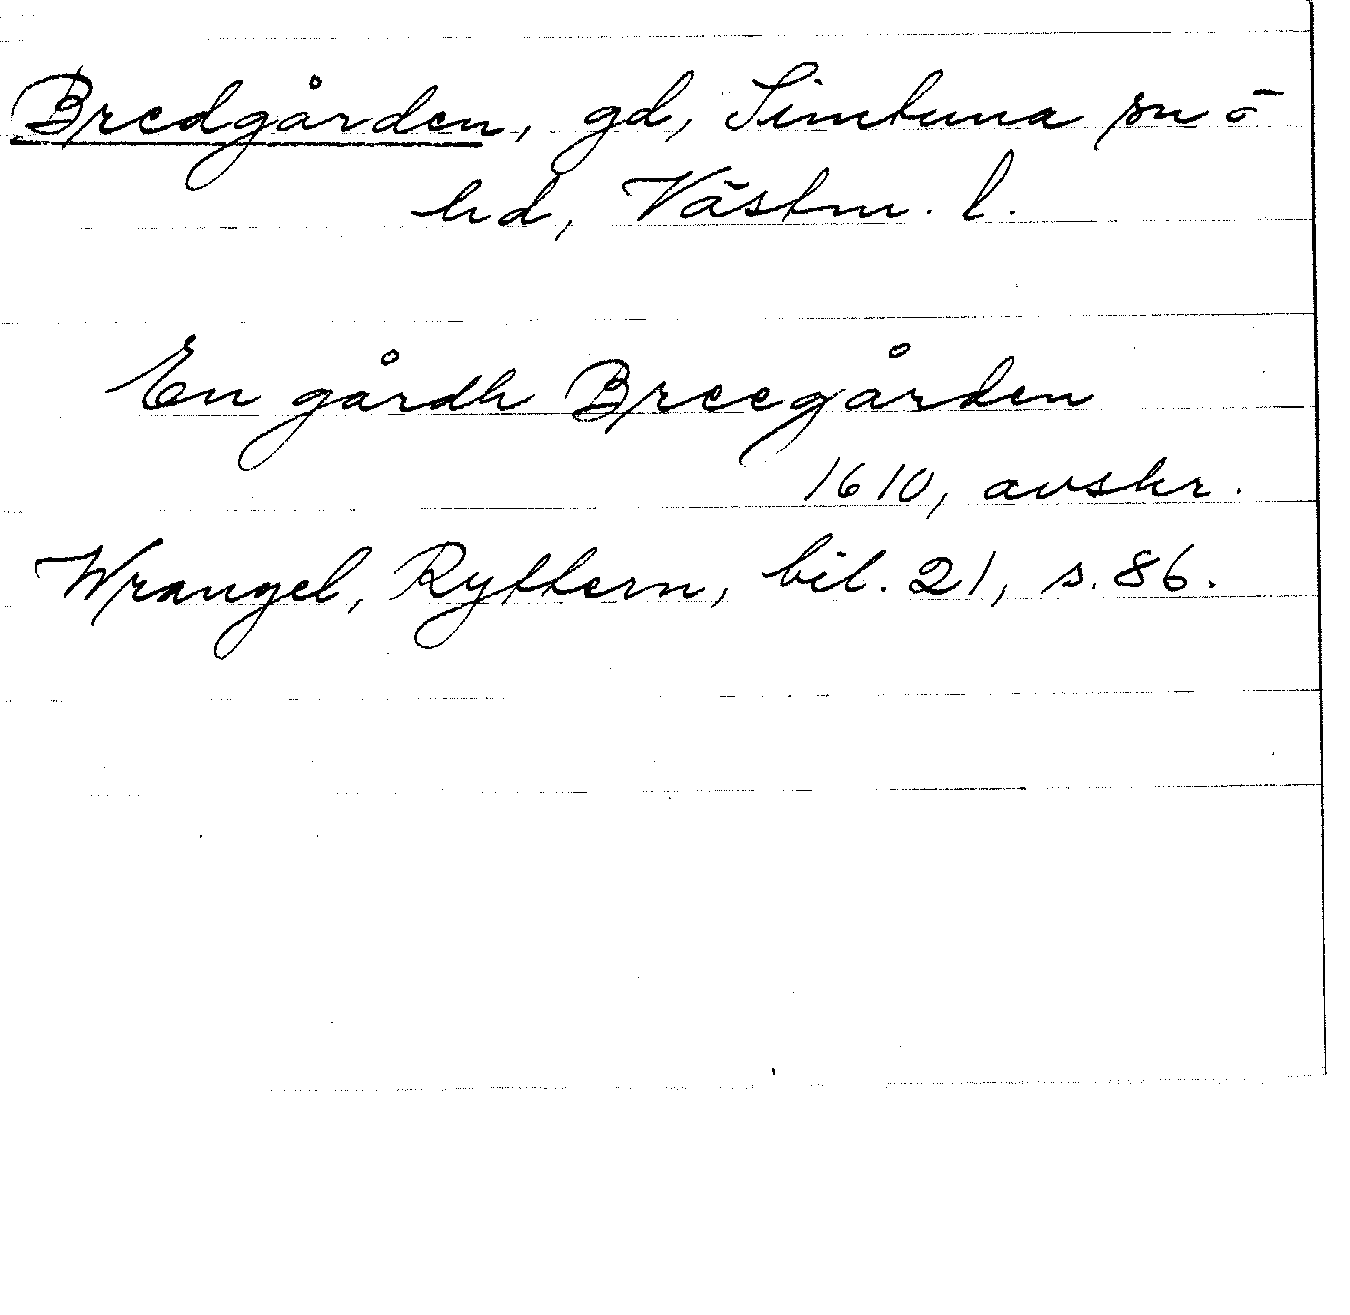 Bredgården, gd, Simtuna sn o
hd, Västm. l.
En gårdh Breegården
1610, avskr.
Wrangel, Ryttern, bil. 21, s. 86.